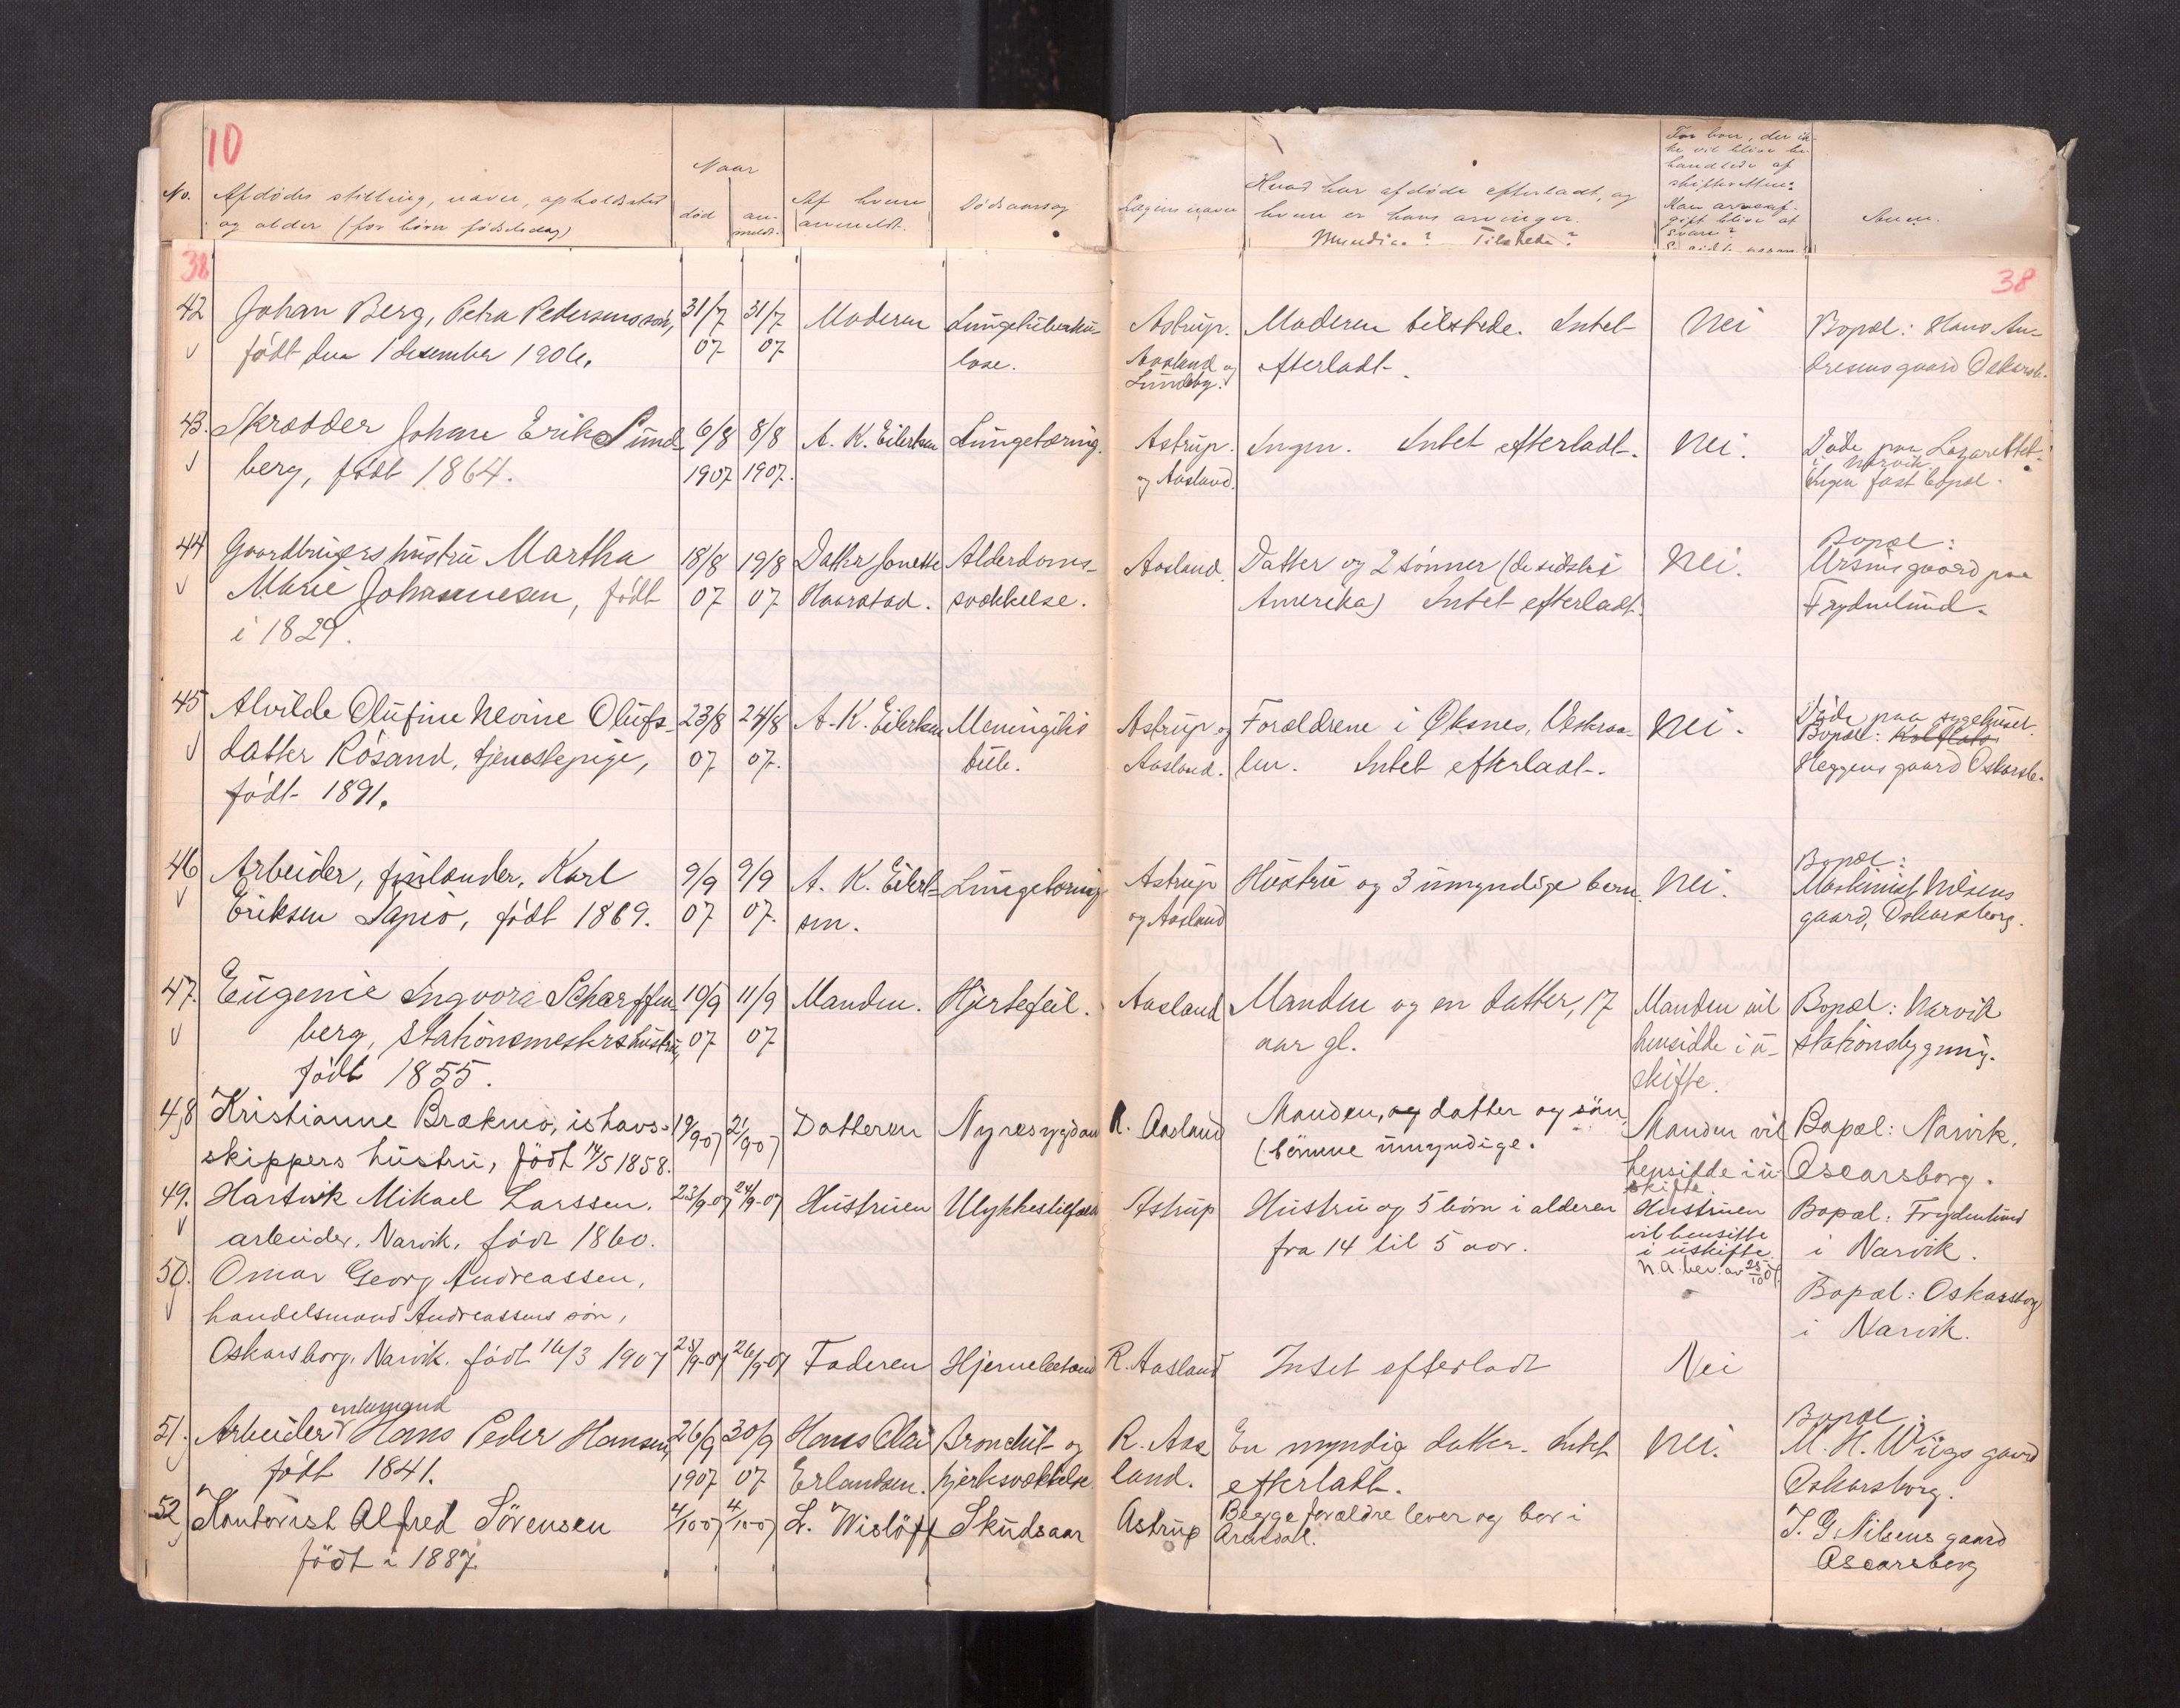 10
No.
Afdødes stilling, navn, opholdssted
og alder (for børn fødselsdag)
Naar
død
an-
meldt.
Af hvem
anmeldt.
Dødsaarsag
Lægens navn
Hvad har afdøde efterladt, og
hvem er hans arvinger.
Myndig? Tilstede?
For boer, der ik-
ke vil blive be-
handlede af
skifteretten:
Kan arveaf-
gift blive at
svare?
Anm.
38
38
42 Johan Berg, Petra Pedersens søn, 31/7 31/7 Moderen Lungetuberku- Astrup. Moderen tilstede. Intet Nei Bopæl: Hans An-
født den 1 desember 1906. 07 07 lose. Aasland og efterladt. dresens gaard Oskarsb.
Lundby.
43. Skrædder Johan Erik Sund- 6/8 8/8 A. K. Eilertsen Lungetæring. Astrup. Ingen. Intet efterladt. Nei. Døde paa Lazarettet
berg, født 1864. 1907 1907. og Aasland. i Narvik.
Ingen fast bopæl.
44 Gaardbrugers hustru Martha 18/8 19/8 Datter Jonette Alderdoms- Aasland. Datter og 2 sønner (de sidste i Nei. Bopæl:
Marie Johannesen, født 07 07 Haarstad. svækkelse. Amerika) Intet efterladt. Ursins gaard paa
i 1829. Frydenlund.
45 Alvilde Olufine Nevine Olufs- 23/8 24/8 A. K. Eilertsen Meningitis Astrup og Forældrene i Øksnes, Vesteraa- Nei. Døde paa sygehuset.
datter Rösand, tjenestepige, 07 07. tub. Aasland. len. Intet efterladt. Bopæl:
født 1891. Heggens gaard Oskarsb.
46 Arbeider, finlænder, Karl 9/9 9/9 A. K. Eilert- Lungetæring Astrup Hustru og 3 umyndige børn. Nei. Bopæl:
Eriksen Sapio, født 1869. 07 07. sen. og Aasland Maskinist Nilsens
gaard, Oskarsborg.
47. Eugenie Ingvora Scharffen- 10/9 11/9 Manden. Hjertefeil. Aasland Manden og en datter, 17 Manden vil Bopæl: Narvik
berg, Stationsmesters hustru, 07 07 aar gl. hensidde i u- stationsbygning.
født 1855. skifte.
48 Kristianne Brækmo, ishavs- 19/9 07 21/9 07 Datteren Nyresygdom R. Aasland Manden, og datter og søn Manden vil Bopæl: Narvik,
skippers hustru, født 14/5 1858. (børnene umyndige. hensidde i u- Oscarsborg.
skifte.
49. Hartvik Mikael Larssen. 23/9-07 24/9-07 Hustruen Ulykkestilfælde Astrup Hustru og 5 børn i alderen Hustruen Bopæl: Frydenlund
arbeider. Narvik, född 1860. fra 14 til 5 aar. vil hensitte i Narvik.
i uskifte.
50. Omar Georg Andreassen,
handelsmand Andreassens søn, Bopæl: Oskarsborg
i Narvik.
Oskarsborg, Narvik. født 16/3 1907 25/9-07 26/9-07 Faderen Hjernebetænd R. Aasland Intet efterladt Nei
enkemand
51. Arbeider Hans Peder Hansen, 26/9 30/9 Hans Olai Bronchit og R. Aas En myndig datter. Intet Nei. Bopæl:
født 1841. 1907 07 Erlandsen. hjertesvækkelse land. efterladt. M. H. Wiigs gaard
Oskarsborg.
52 Kontorist Alfred Sörensen 4/10 07 4/10 07 L. Wislöff Skudsaar Astrup Begge forældre lever og bor i J. G Nilsens gaard
född i 1887. Arendal. Oscarsborg